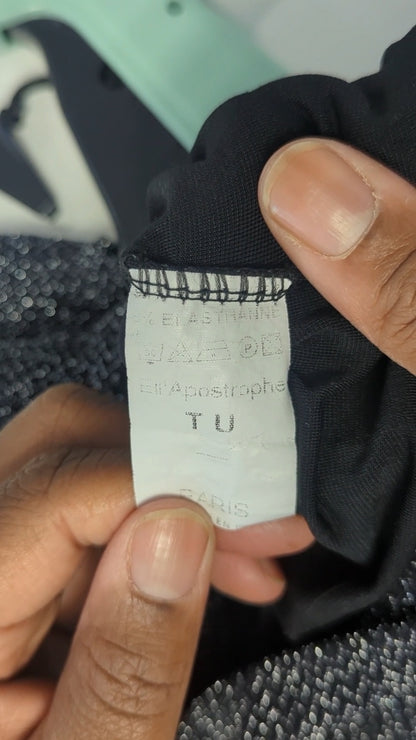 % ELASTHANNE
P
Ell'Apostrophe
TU
PARIS